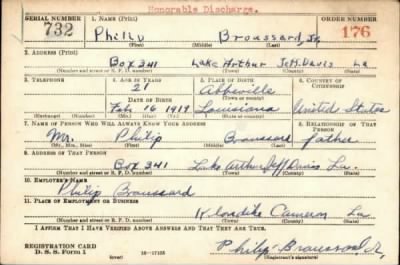 Honorable Discharge.
SERIAL NUMBER 1. NAME (Print) ORDER NUMBER
732 Philip Broussard, Jr. 176
(First) (Middle) (Last)
2. ADDRESS (Print)
Box 341 Lake Arthur Jeff Davis La
(Number and street or R. F. D. number) (Town) (County) (State)
3. TELEPHONE 4. AGE IN YEARS 5. PLACE OF BIRTH 6. COUNTRY OF CITIZENSHIP
21 Abbeville
DATE OF BIRTH (Town or county)
Feb 16 1919 Louisiana United States
(Mo.) (Day) (Yr.) (State or country)
7. NAME OF PERSON WHO WILL ALWAYS KNOW YOUR ADDRESS 8. RELATIONSHIP OF THAT PERSON
Mr. Philip Broussard father
(Mr., Mrs., Miss) (First) (Middle) (Last)
9. ADDRESS OF THAT PERSON
Box 341 Lake Arthur Jeff Davis La.
(Number and street or R. F. D. number) (Town) (County) (State)
10. EMPLOYER'S NAME
Philip Broussard
11. PLACE OF EMPLOYMENT OR BUSINESS
Klondike Cameron La
(Number and street or R. F. D. number) (Town) (County) (State)
I AFFIRM THAT I HAVE VERIFIED ABOVE ANSWERS AND THAT THEY ARE TRUE.
REGISTRATION CARD
D. S. S. Form 1 (over) Philip Broussard, Jr.
(Registrant's signature)